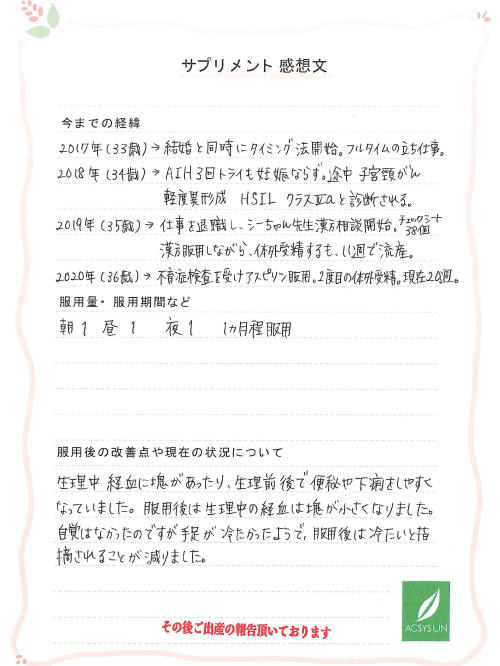 サプリメント 感想文
今までの経緯
2017年(33歳)→ 結婚と同時にタイミング法開始。フルタイムの立ち仕事。
2018年(34歳)→ AIH3回トライも妊娠ならず。途中 子宮頸がん
軽度異形成 HSIL クラスⅢaと診断される。
2019年(35歳)→ 仕事を退職し、シーちゃん先生漢方相談開始。チェックシート38個
漢方服用しながら、体外受精するも、11週で流産。
2020年(36歳)→ 不育症検査を受けアスピリン服用。2度目の体外受精。現在20週。
服用量・服用期間など
朝1 昼1 夜1 1ヵ月程服用
服用後の改善点や現在の状況について
生理中 経血に塊があったり、生理前後で便秘や下痢をしやすく
なっていました。服用後は生理中の経血は塊が小さくなりました。
自覚はなかったのですが手足が冷たかったようで、服用後は冷たいと指
摘されることが減りました。
その後ご出産の報告頂いております
ACSYSUN